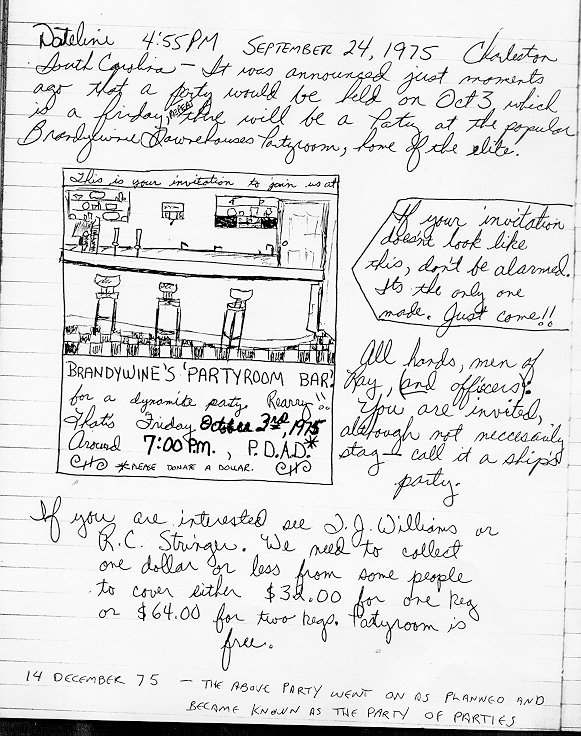 Dateline 4:55PM SEPTEMBER 24, 1975 Charleston
South Carolina - It was announced just moments
ago that a party would be held on Oct 3, which
is a friday, there will be a Paty at the popular
Brandywine Townehouses Partyroom, home of the elite.
This is your invitation to join us at
BRANDYWINE'S 'PARTYROOM BAR'
for a dynamite party. Rearry!!
That's Friday October 3rd, 1975
Around 7:00 P.M., P.D.A.D.*
*PLEASE DONATE A DOLLAR.
If your invitation
doesn't look like
this, don't be alarmed.
It's the only one
made. Just come!!
All hands, men of
Ray, (and officers)!
You are invited,
although not neccessarily
stag - call it a ship's
party.
If you are interested see T.J. Williams or
R.C. Stringer. We need to collect
one dollar or less from some people
to cover either $32.00 for one keg
or $64.00 for two kegs. Patyroom is
free.
14 DECEMBER 75 - THE ABOVE PARTY WENT ON AS PLANNED AND
BECAME KNOWN AS THE PARTY OF PARTIES